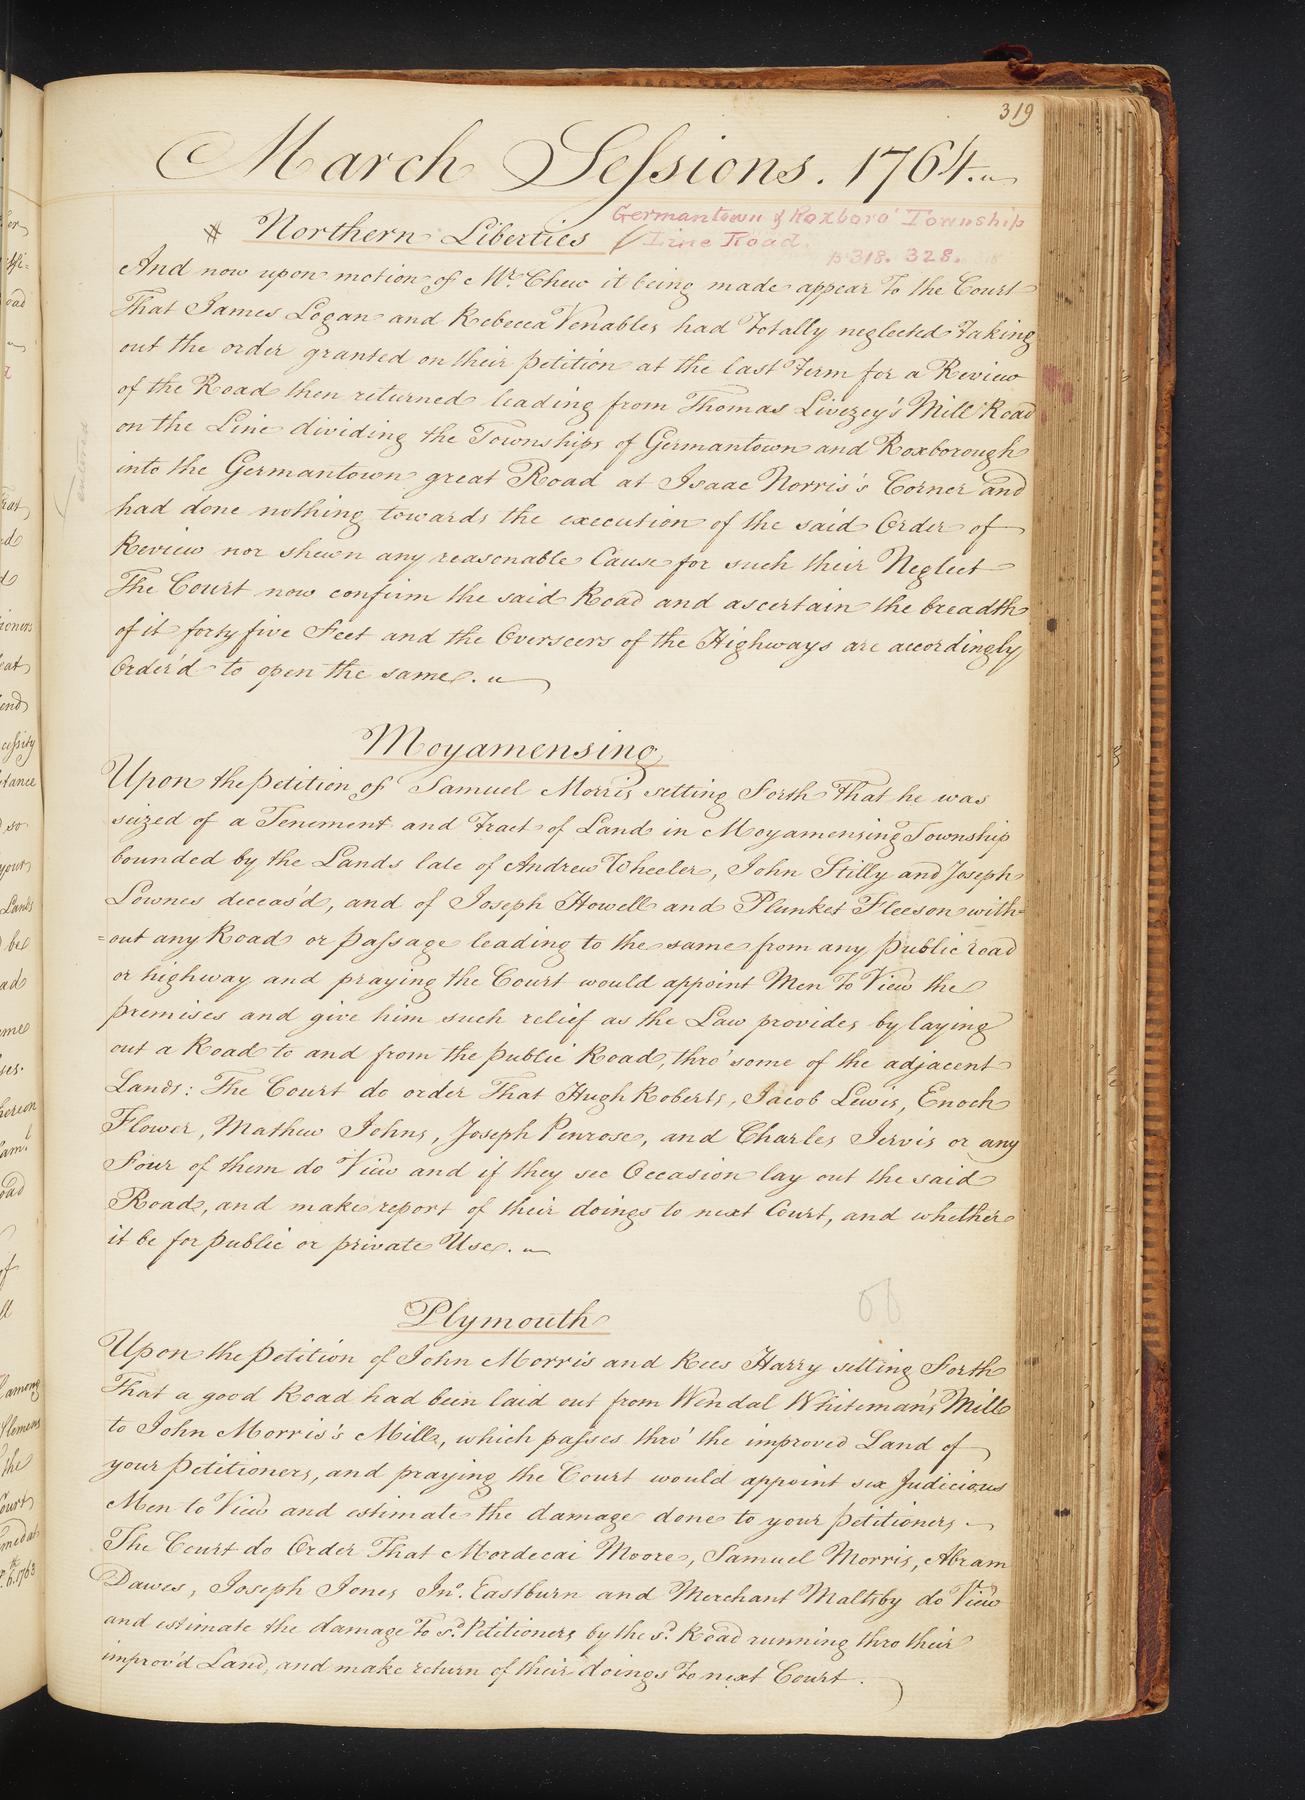 319
March Sessions. 1764.
# Northern Liberties
Germantown & Roxboro' Township
Line Road.
p 318. 328.
And now upon motion of Mr. Chew it being made appear To the Court
That James Logan and Rebecca Venables had Totally neglected Taking
out the order granted on their petition at the last Term for a Review
of the Road then returned leading from Thomas Livezey's Mill Road
on the Line dividing the Townships of Germantown and Roxborough
into the Germantown great Road at Isaac Norris's Corner and
had done nothing towards the execution of the said Order of
Review nor shewn any reasonable Cause for such their Neglect
The Court now confirm the said Road and ascertain the breadth
of it forty five Feet and the Overseers of the Highways are accordingly
Order'd to open the same.
entered
Moyamensing
Upon the petition of Samuel Morris setting Forth That he was
seized of a Tenement and Tract of Land in Moyamensing Township
bounded by the Lands late of Andrew Wheeler, John Stilly and Joseph
Lownes deceas'd, and of Joseph Howell and Plunket Fleeson with=
=out any Road or passage leading to the same from any public road
or highway and praying the Court would appoint Men To View the
premises and give him such relief as the Law provides by laying
out a Road to and from the public Road, thro' some of the adjacent
Lands: The Court do order That Hugh Roberts, Jacob Lewis, Enoch
Flower, Mathew Johns, Joseph Penrose, and Charles Jervis or any
Four of them do View and if they see Occasion lay out the said
Road, and make report of their doings to next Court, and whether
it be for public or private Use.
Plymouth
Upon the petition of John Morris and Rees Harry setting Forth
That a good Road had been laid out from Wendal Whiteman's Mill
to John Morris's Mill, which passes thro' the improved Land of
your petitioners, and praying the Court would appoint six Judicious
Men to View and estimate the damage done to your petitioners
The Court do Order That Mordecai Moore, Samuel Morris, Abram
Dawes, Joseph Jones Jno. Eastburn and Merchant Maltsby do View
and estimate the damage To sd. Petitioners by the sd. Road running thro their
improv'd Land, and make return of their doings To next Court.